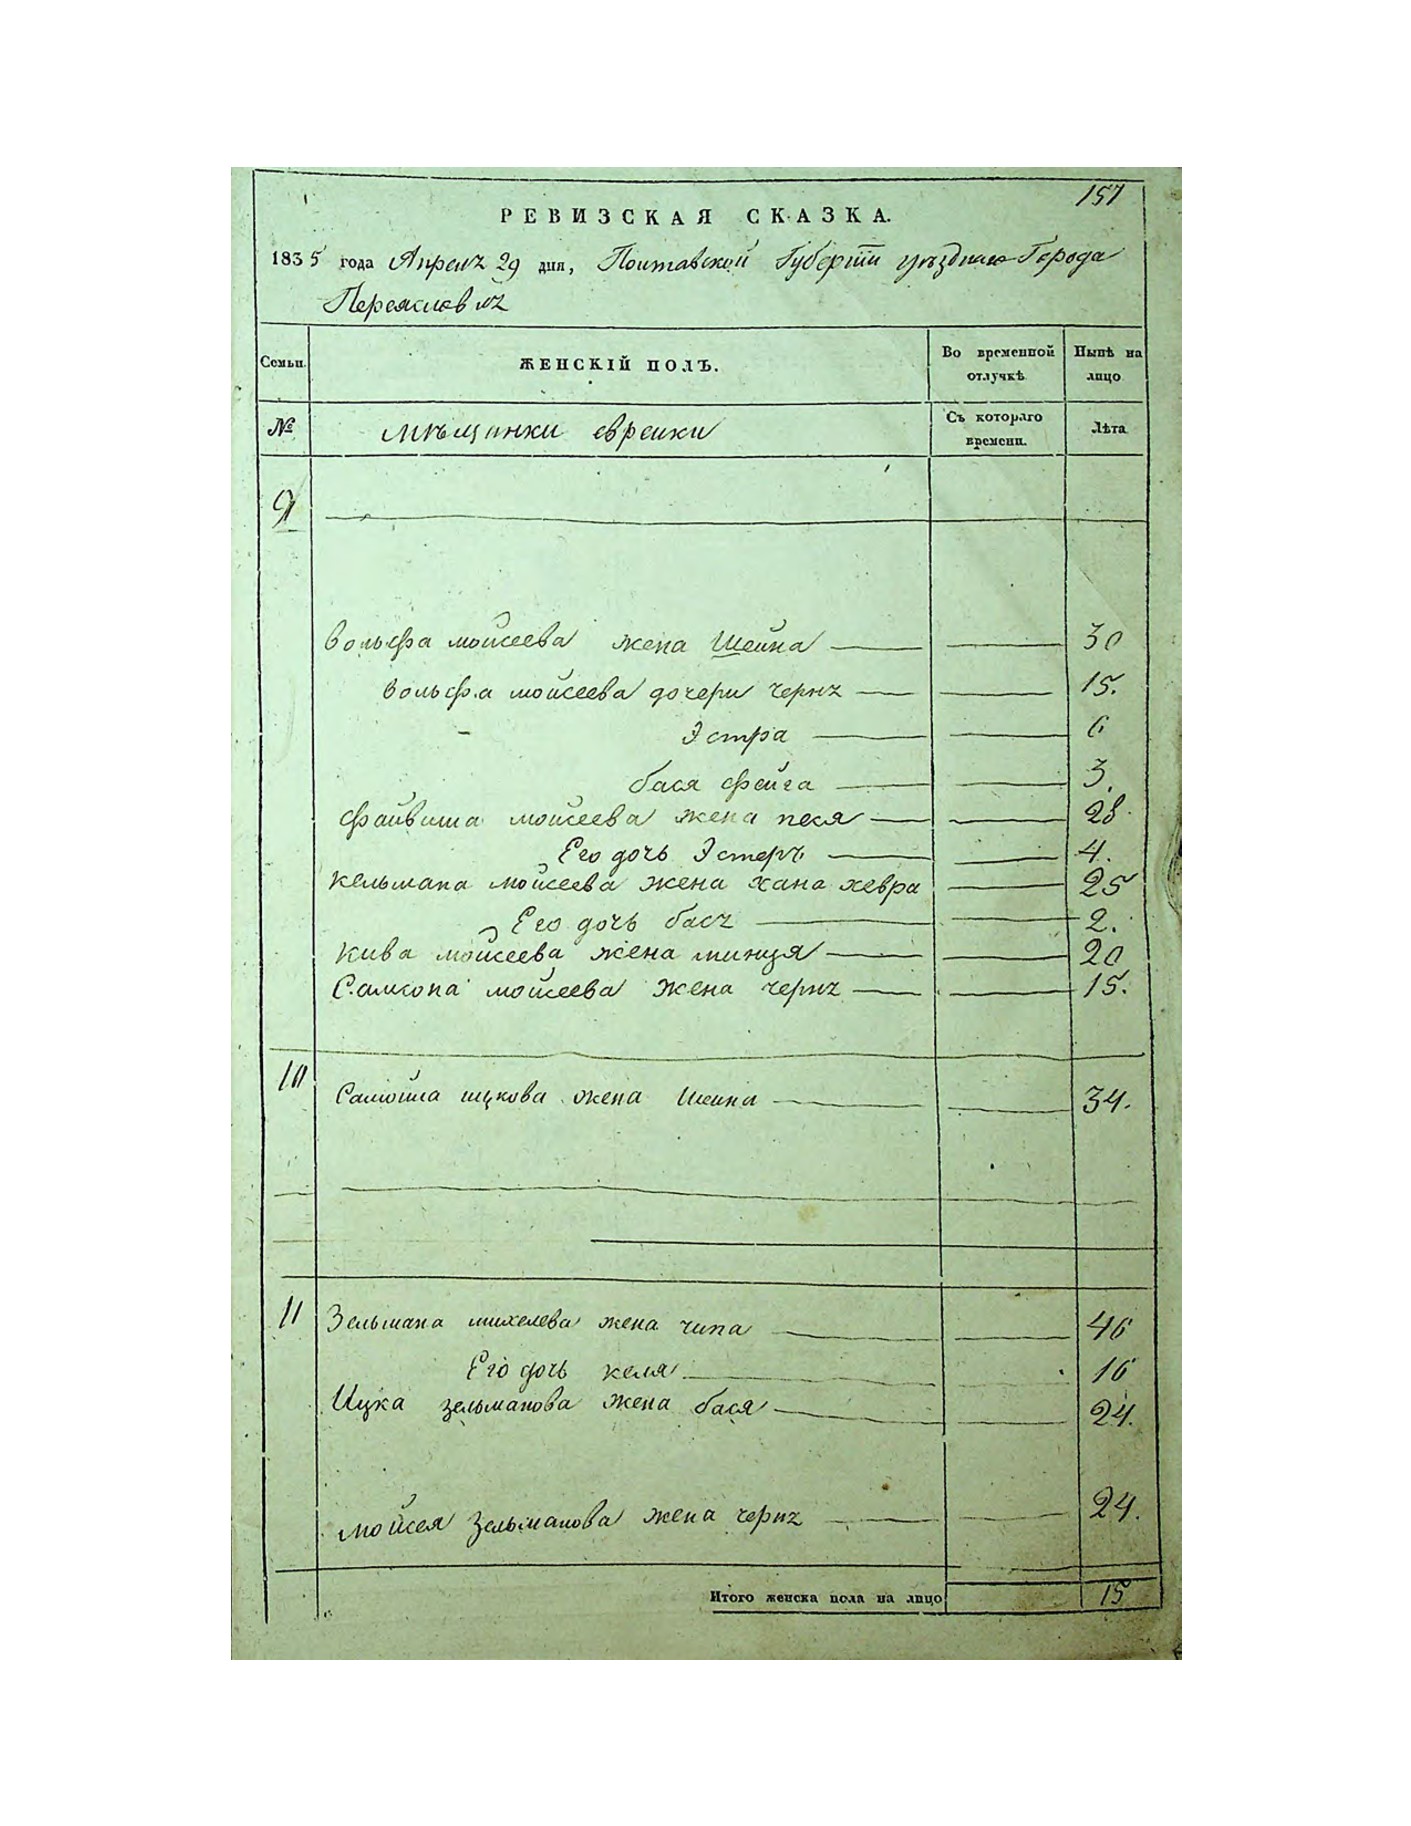 157
РЕВИЗСКАЯ СКАЗКА.
1835 года Апрелъ 29 дня, Полтавской Губерніи уѣзднаго Города
Переяславлъ
Семьи. ЖЕНСКІЙ ПОЛЪ. Во временной отлучкѣ Нынѣ на лицо
№ мѣщанки евреики Съ котораго времени. Лѣта
9
вольфа мойсеева жена Шейна 30
вольфа мойсеева дочери чернъ 15.
Эстра 6
бася фейга 3.
файвиша мойсеева жена песя 28
Его дочь Эстеръ 4.
кельмана мойсеева жена хана хевра 25
Его дочь басъ 2.
кива мойсеева жена минця 20
Самсона мойсеева жена чернъ 15.
10 Самойла ицкова жена Шейна 34.
11 Зельмана михелева жена чипа 46
Его дочь келя 16
Ицка зельманова жена бася 24.
мойсея зельманова жена чернъ 24.
Итого женска пола на лицо 15